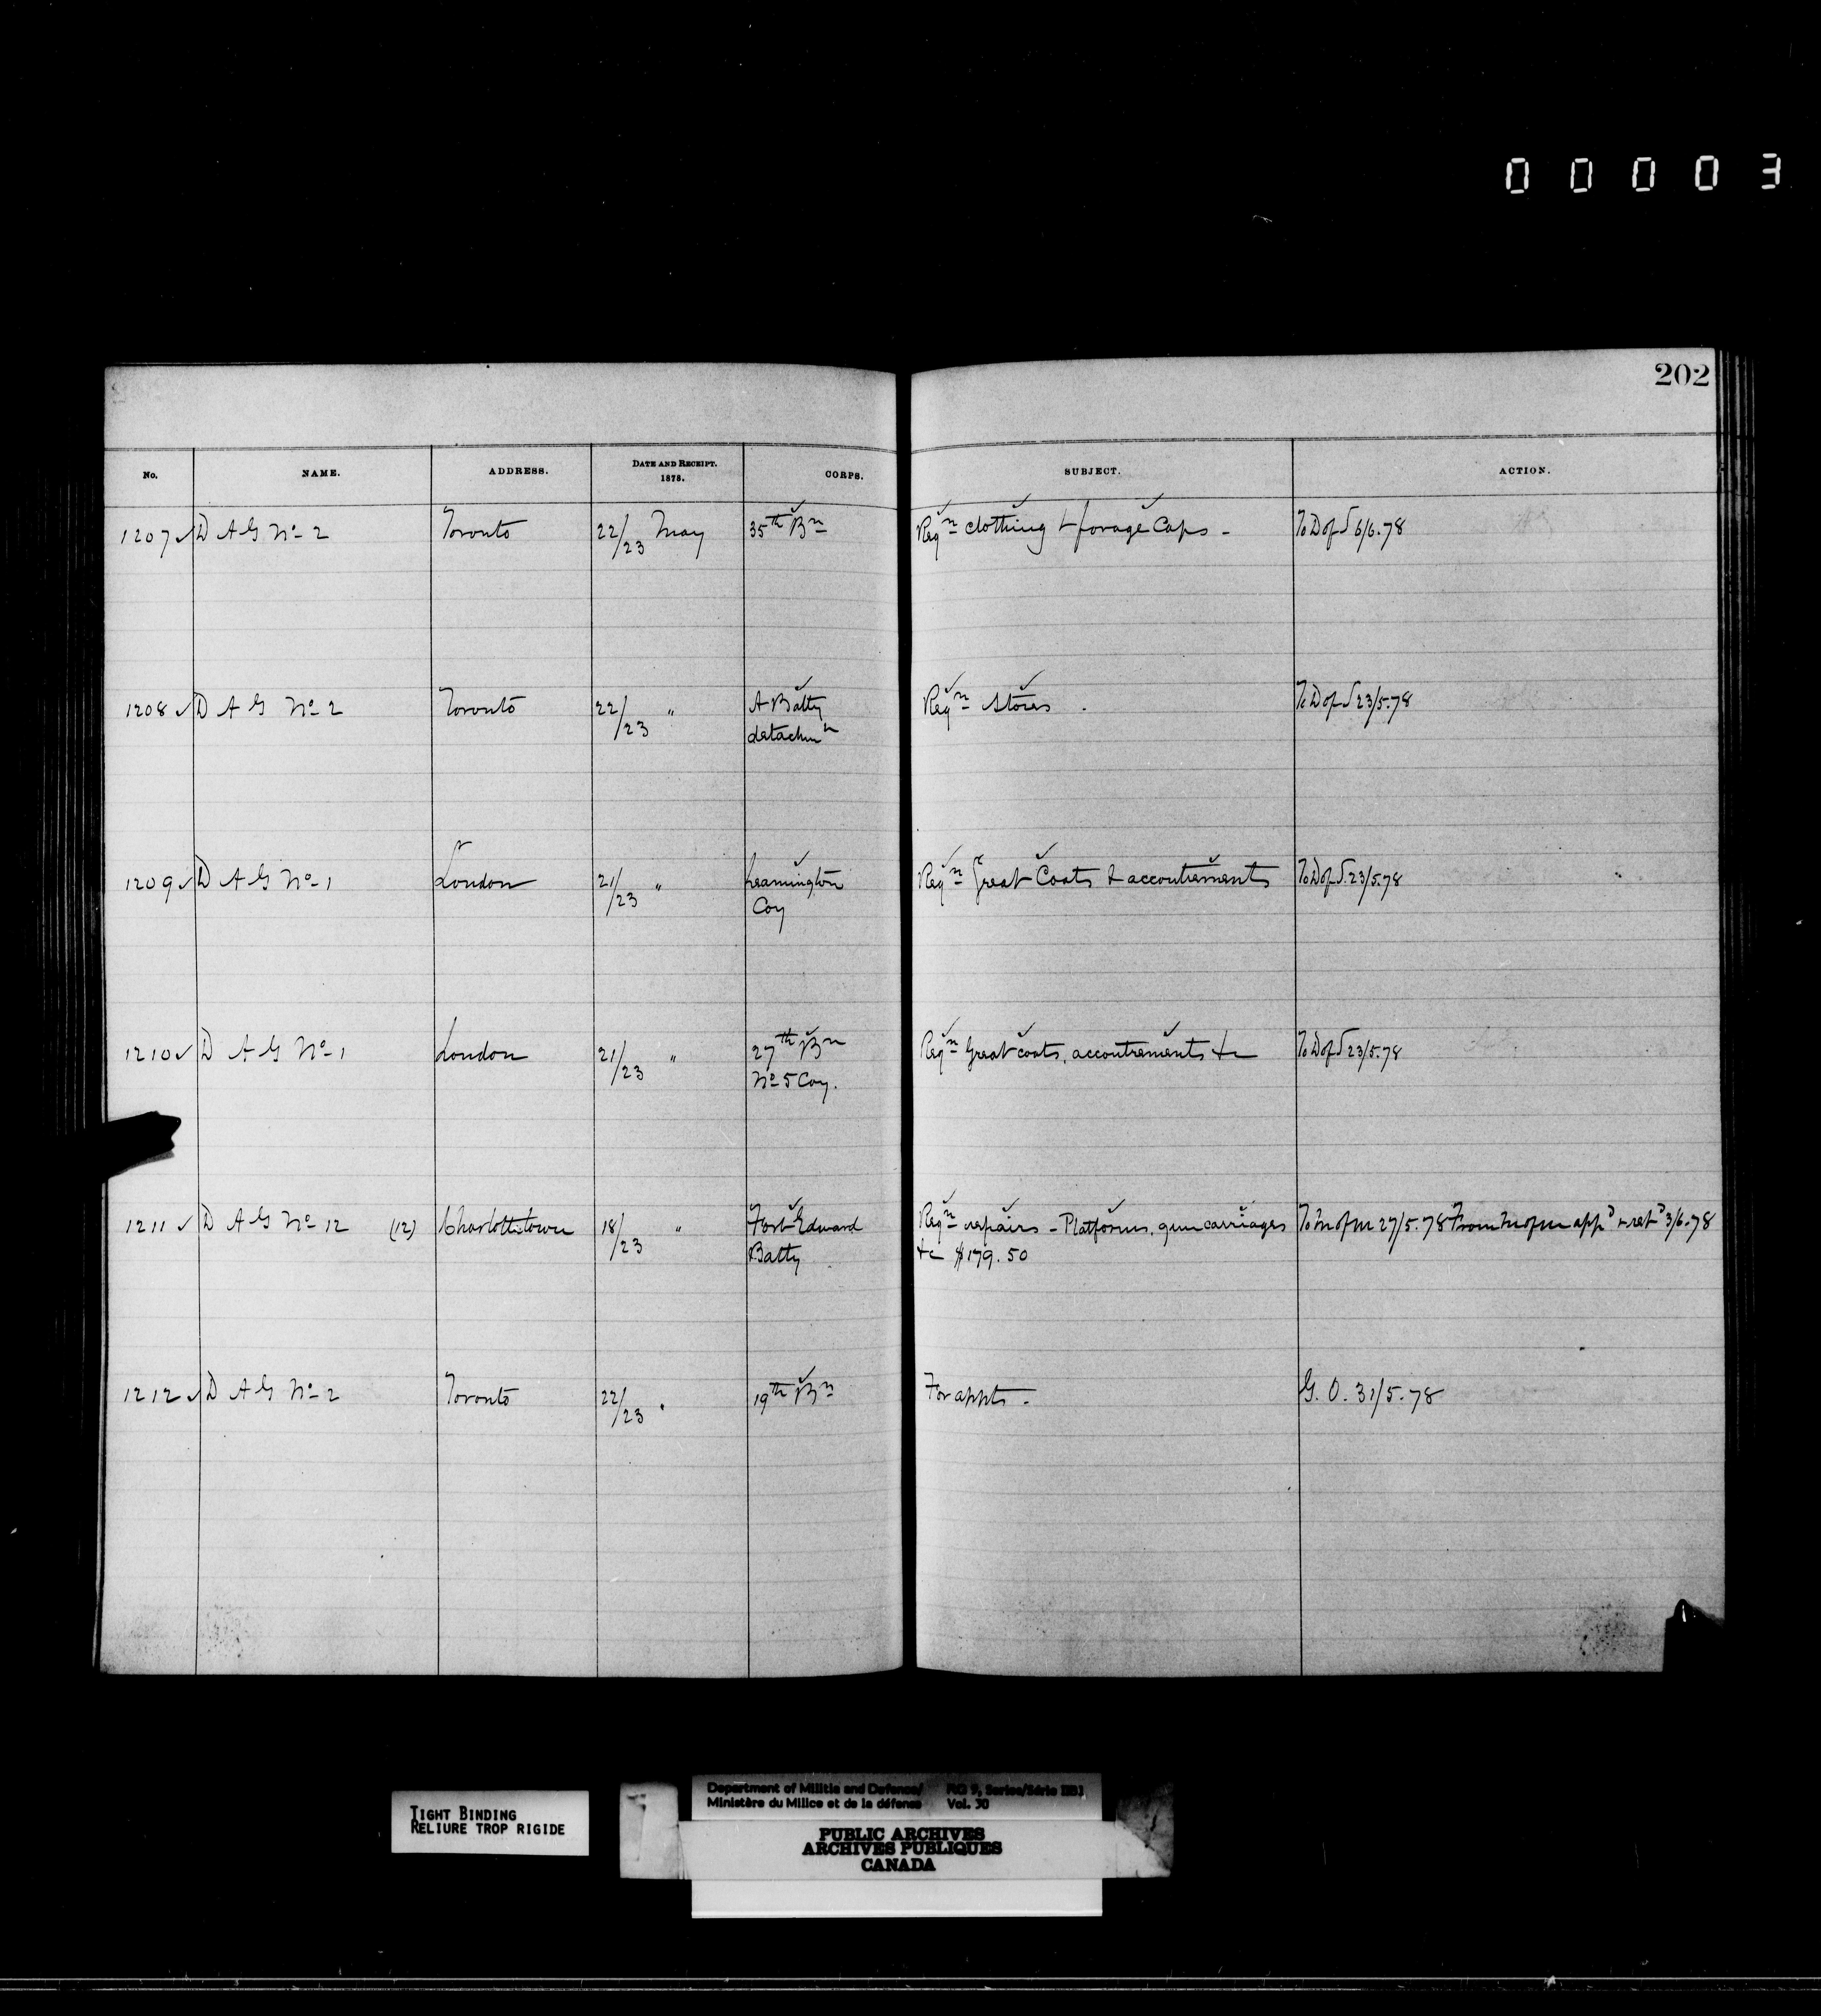 00003
202
No. NAME. ADDRESS. DATE AND RECEIPT. 1878. CORPS. SUBJECT. ACTION.
1207 ✓ D A G No 2 Toronto 22/23 May 35th Bn Reqn clothing & forage Caps - To D of S 6/6.78
1208 ✓ D A G No 2 Toronto 22/23 " A Batty Reqn Stores. To D of S 23/5.78
detachmn
1209 ✓ D A G No 1 London 21/23 " Leamington Reqn Great Coats & accoutrements To D of S. 23/5.78
Coy
1210 ✓ D A G No 1 London 21/23 " 27th Bn Reqn Great coats, accoutrements &c To D of S 23/5.78
No 5 Coy.
1211 ✓ D A G No 12 (12) Charlottetown 18/23 " Fort Edward Reqn repairs - Platforms, gun carriages To M of M 27/5.78 From M of M appd & retd 3/6.78
Batty &c $179.50
1212 ✓ D A G No 2 Toronto 22/23 " 19th Bn For appts - G. O. 31/5.78
TIGHT BINDING
RELIURE TROP RIGIDE
Department of Militia and Defence/ RG 9, Series/Série IIB1
Ministère du Milice et de la défense Vol. 30
PUBLIC ARCHIVES
ARCHIVES PUBLIQUES
CANADA